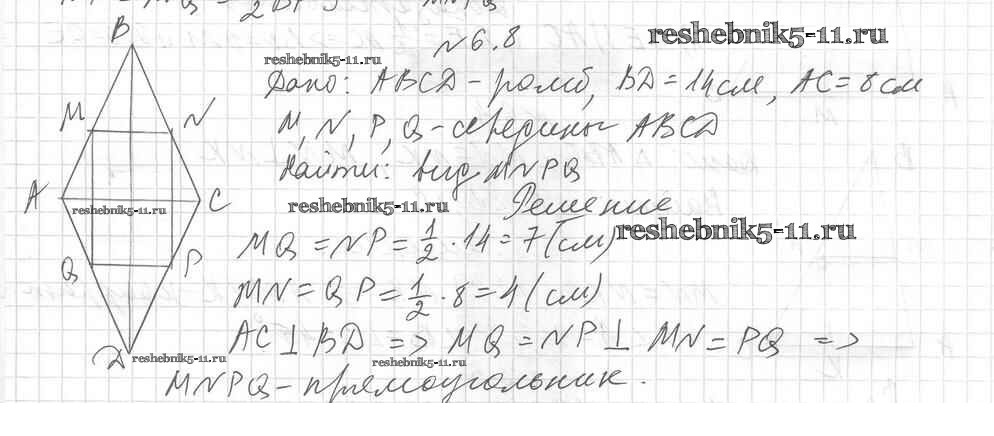 №6.8
reshebnik5-11.ru
reshebnik5-11.ru
Дано: ABCD - ромб, BD = 14 см, AC = 8 см
M, N, P, Q - середины ABCD
Найти: вид MNPQ
reshebnik5-11.ru
Решение
MQ = NP = 1/2 · 14 = 7 (см)
reshebnik5-11.ru
MN = QP = 1/2 · 8 = 4 (см)
AC ⊥ BD => MQ = NP ⊥ MN = PQ =>
reshebnik5-11.ru
MNPQ - прямоугольник.
B
M N
A C
reshebnik5-11.ru
Q P
D
reshebnik5-11.ru